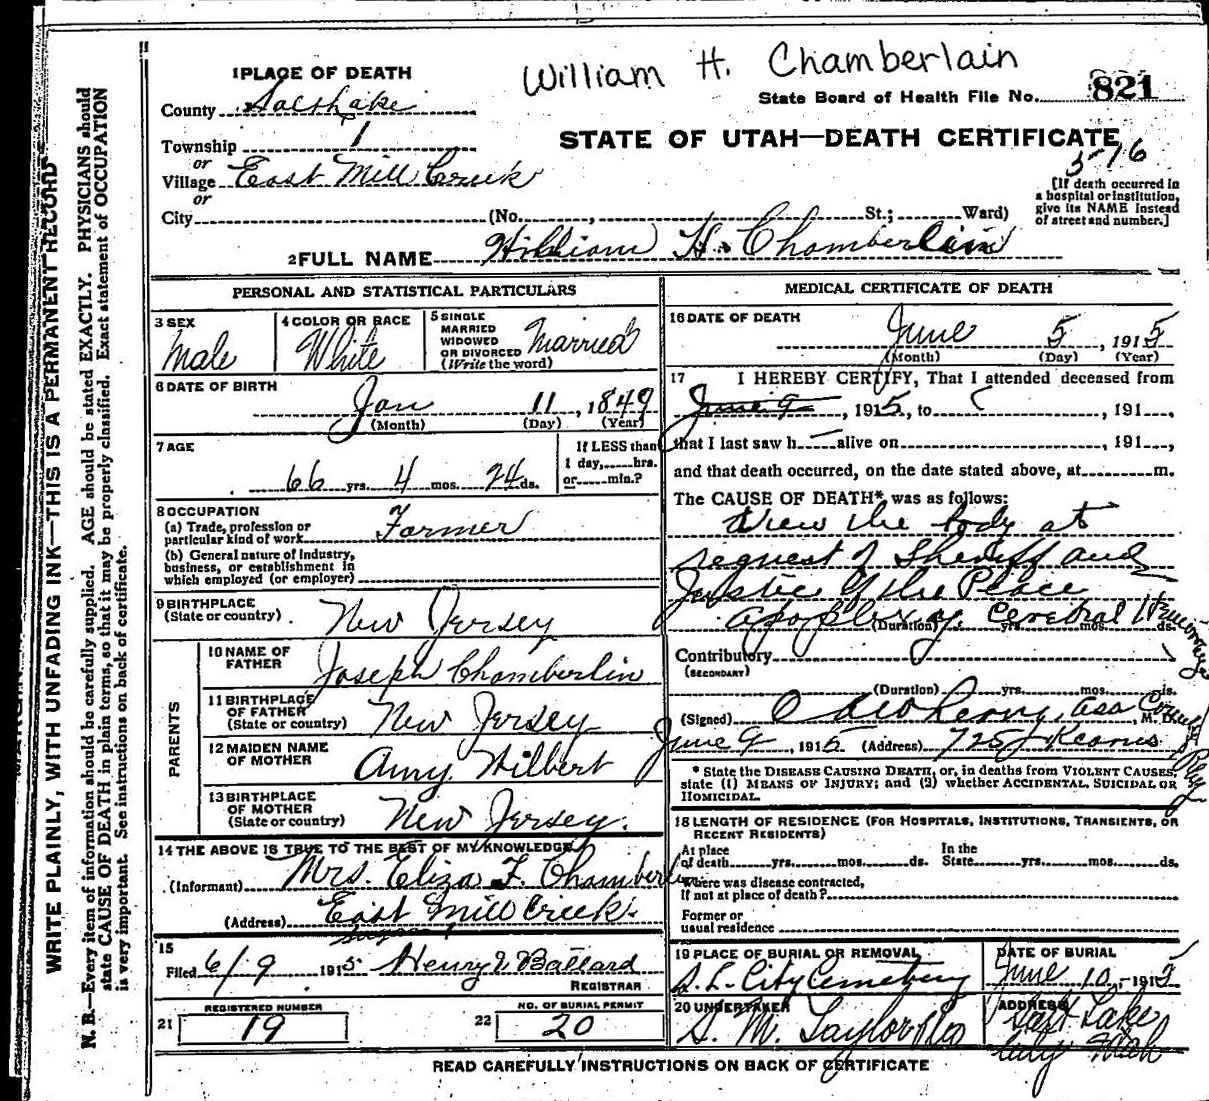 William H. Chamberlain
1 PLACE OF DEATH
County Salt Lake
State Board of Health File No. 821
Township 1
STATE OF UTAH—DEATH CERTIFICATE
576
or
Village East Mill Creek
or
City (No. , St.; Ward)
[If death occurred in
a hospital or institution,
give its NAME instead
of street and number.]
2 FULL NAME William H. Chamberlain
PERSONAL AND STATISTICAL PARTICULARS
3 SEX
Male
4 COLOR OR RACE
White
5 SINGLE
MARRIED
WIDOWED
OR DIVORCED
(Write the word)
Married
6 DATE OF BIRTH
Jan 11, 1849
(Month) (Day) (Year)
7 AGE
66 yrs. 4 mos. 24 ds.
If LESS than
1 day, hrs.
or min.?
8 OCCUPATION
(a) Trade, profession or
particular kind of work Farmer
(b) General nature of industry,
business, or establishment in
which employed (or employer)
9 BIRTHPLACE
(State or country) New Jersey
PARENTS
10 NAME OF
FATHER Joseph Chamberlin
11 BIRTHPLACE
OF FATHER
(State or country) New Jersey
12 MAIDEN NAME
OF MOTHER Amy Hilbert
13 BIRTHPLACE
OF MOTHER
(State or country) New Jersey.
14 THE ABOVE IS TRUE TO THE BEST OF MY KNOWLEDGE
(Informant) Mrs. Eliza F. Chamberlin
(Address) East Mill Creek
15
Filed 6/9 1915 Henry Ballard
REGISTRAR
21 REGISTERED NUMBER
19
22 NO. OF BURIAL PERMIT
20
MEDICAL CERTIFICATE OF DEATH
16 DATE OF DEATH
June 5, 1915
(Month) (Day) (Year)
17 I HEREBY CERTIFY, That I attended deceased from
June 9, 1915, to , 191 ,
that I last saw h alive on , 191 ,
and that death occurred, on the date stated above, at m.
The CAUSE OF DEATH* was as follows:
View the body at
request of Sheriff and
Justice of the Peace
apoplexy. Cerebral Hemorrhage
(Duration) yrs. mos. ds.
Contributory
(SECONDARY)
(Duration) yrs. mos. ds.
(Signed) M. D.
June 9, 1915 (Address) 725 Kearns
* State the DISEASE CAUSING DEATH, or, in deaths from VIOLENT CAUSES,
state (1) MEANS OF INJURY; and (2) whether ACCIDENTAL, SUICIDAL OR
HOMICIDAL.
18 LENGTH OF RESIDENCE (FOR HOSPITALS, INSTITUTIONS, TRANSIENTS, OR
RECENT RESIDENTS)
At place
of death yrs. mos. ds.
In the
State yrs. mos. ds.
Where was disease contracted,
If not at place of death?
Former or
usual residence
19 PLACE OF BURIAL OR REMOVAL
S. L. City Cemetery
DATE OF BURIAL
June 10, 1915
20 UNDERTAKER
S. M. Taylor & Co
ADDRESS
Salt Lake
City Utah
READ CAREFULLY INSTRUCTIONS ON BACK OF CERTIFICATE
WRITE PLAINLY, WITH UNFADING INK—THIS IS A PERMANENT RECORD
N. B.—Every item of information should be carefully supplied. AGE should be stated EXACTLY. PHYSICIANS should
state CAUSE OF DEATH in plain terms, so that it may be properly classified. Exact statement of OCCUPATION
is very important. See instructions on back of certificate.